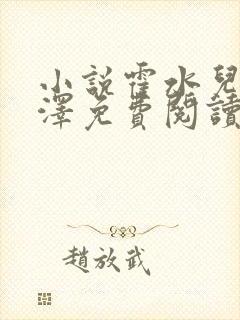 小說霍水兒
澤免費閱讀
趙放武